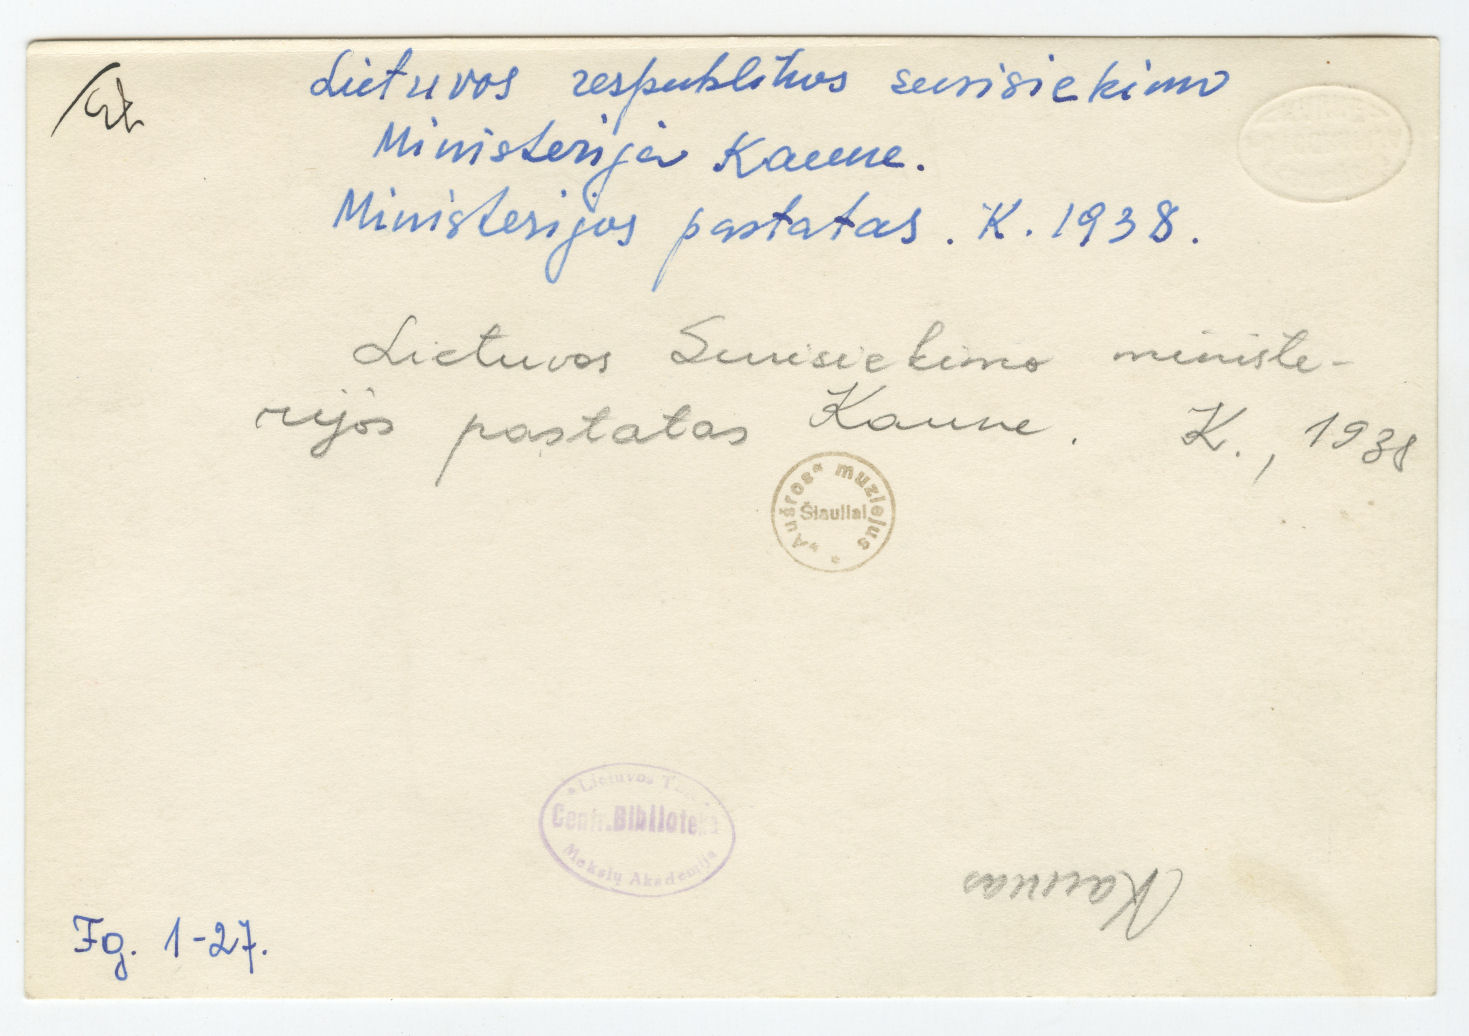 Lietuvos respublikos susisiekimo
Ministerija Kaune.
Ministerijos pastatas. K. 1938.
Lietuvos Susisiekimo ministe-
rijos pastatas Kaune. K., 1938
„Aušros“ muziejus
Šiauliai
Lietuvos
Centr. Biblioteka
Mokslų Akademija
Kaunas
Fg. 1-27.